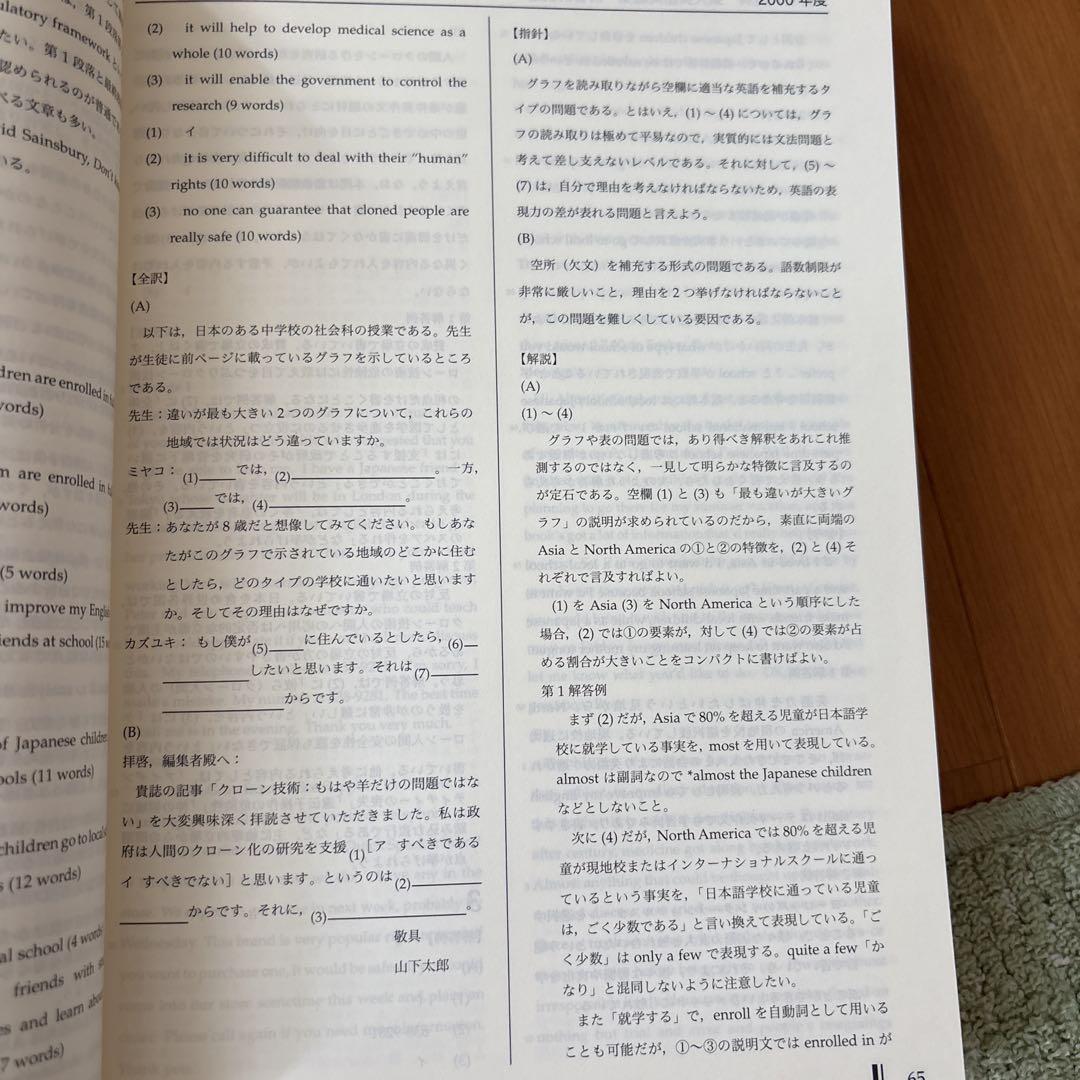 2000年度
て
は，第1段
ulatory framework とい
たい。第1段落と最終
認められるのが普通で
べる文章も多い。
id Sainsbury, Don't
いる。
dren are enrolled in
words)
m are enrolled in
words)
(5 words)
improve my English
iends at school (15 w
of Japanese children
ools (11 words)
children go to local s
s (12 words)
al school (4 words
friends with
es and learn about
7 words)
(2) it will help to develop medical science as a
whole (10 words)
(3) it will enable the government to control the
research (9 words)
(1) イ
(2) it is very difficult to deal with their “human”
rights (10 words)
(3) no one can guarantee that cloned people are
really safe (10 words)
【全訳】
(A)
以下は，日本のある中学校の社会科の授業である。先生
が生徒に前ページに載っているグラフを示しているところ
である。
先生：違いが最も大きい2つのグラフについて，これらの
地域では状況はどう違っていますか。
ミヤコ： (1)＿＿＿では，(2)＿＿＿＿＿＿＿＿＿＿。一方，
(3)＿＿＿では，(4)＿＿＿＿＿＿＿＿＿。
先生：あなたが8歳だと想像してみてください。もしあな
たがこのグラフで示されている地域のどこかに住む
としたら，どのタイプの学校に通いたいと思います
か。そしてその理由はなぜですか。
カズユキ： もし僕が(5)＿＿＿に住んでいるとしたら，(6)＿
＿＿＿＿＿＿したいと思います。それは(7)＿＿＿＿
＿＿＿＿＿＿＿＿＿からです。
(B)
拝啓，編集者殿へ：
貴誌の記事「クローン技術：もはや羊だけの問題ではな
い」を大変興味深く拝読させていただきました。私は政
府は人間のクローン化の研究を支援(1)［ア すべきである
イ すべきでない］と思います。というのは(2)＿＿＿＿＿＿
＿＿＿＿からです。それに，(3)＿＿＿＿＿＿＿＿＿＿。
敬具
山下太郎
【指針】
(A)
グラフを読み取りながら空欄に適当な英語を補充するタ
イプの問題である。とはいえ，(1)～(4)については，グラ
フの読み取りは極めて平易なので，実質的には文法問題と
考えて差し支えないレベルである。それに対して，(5)～
(7)は，自分で理由を考えなければならないため，英語の表
現力の差が表れる問題と言えよう。
(B)
空所（欠文）を補充する形式の問題である。語数制限が
非常に厳しいこと，理由を2つ挙げなければならないこと
が，この問題を難しくしている要因である。
【解説】
(A)
(1)～(4)
グラフや表の問題では，あり得べき解釈をあれこれ推
測するのではなく，一見して明らかな特徴に言及するの
が定石である。空欄(1)と(3)も「最も違いが大きいグ
ラフ」の説明が求められているのだから，素直に両端の
AsiaとNorth Americaの①と②の特徴を，(2)と(4)そ
れぞれで言及すればよい。
(1)をAsia (3)をNorth Americaという順序にした
場合，(2)では①の要素が，対して(4)では②の要素が占
める割合が大きいことをコンパクトに書けばよい。
第1解答例
まず(2)だが，Asiaで80%を超える児童が日本語学
校に就学している事実を，mostを用いて表現している。
almostは副詞なので*almost the Japanese children
などとしないこと。
次に(4)だが，North Americaでは80%を超える児
童が現地校またはインターナショナルスクールに通っ
ているという事実を，「日本語学校に通っている児童
は，ごく少数である」と言い換えて表現している。「ご
く少数」はonly a fewで表現する。quite a few「か
なり」と混同しないように注意したい。
また「就学する」で，enrollを自動詞として用いる
ことも可能だが，①～③の説明文ではenrolled inが
65